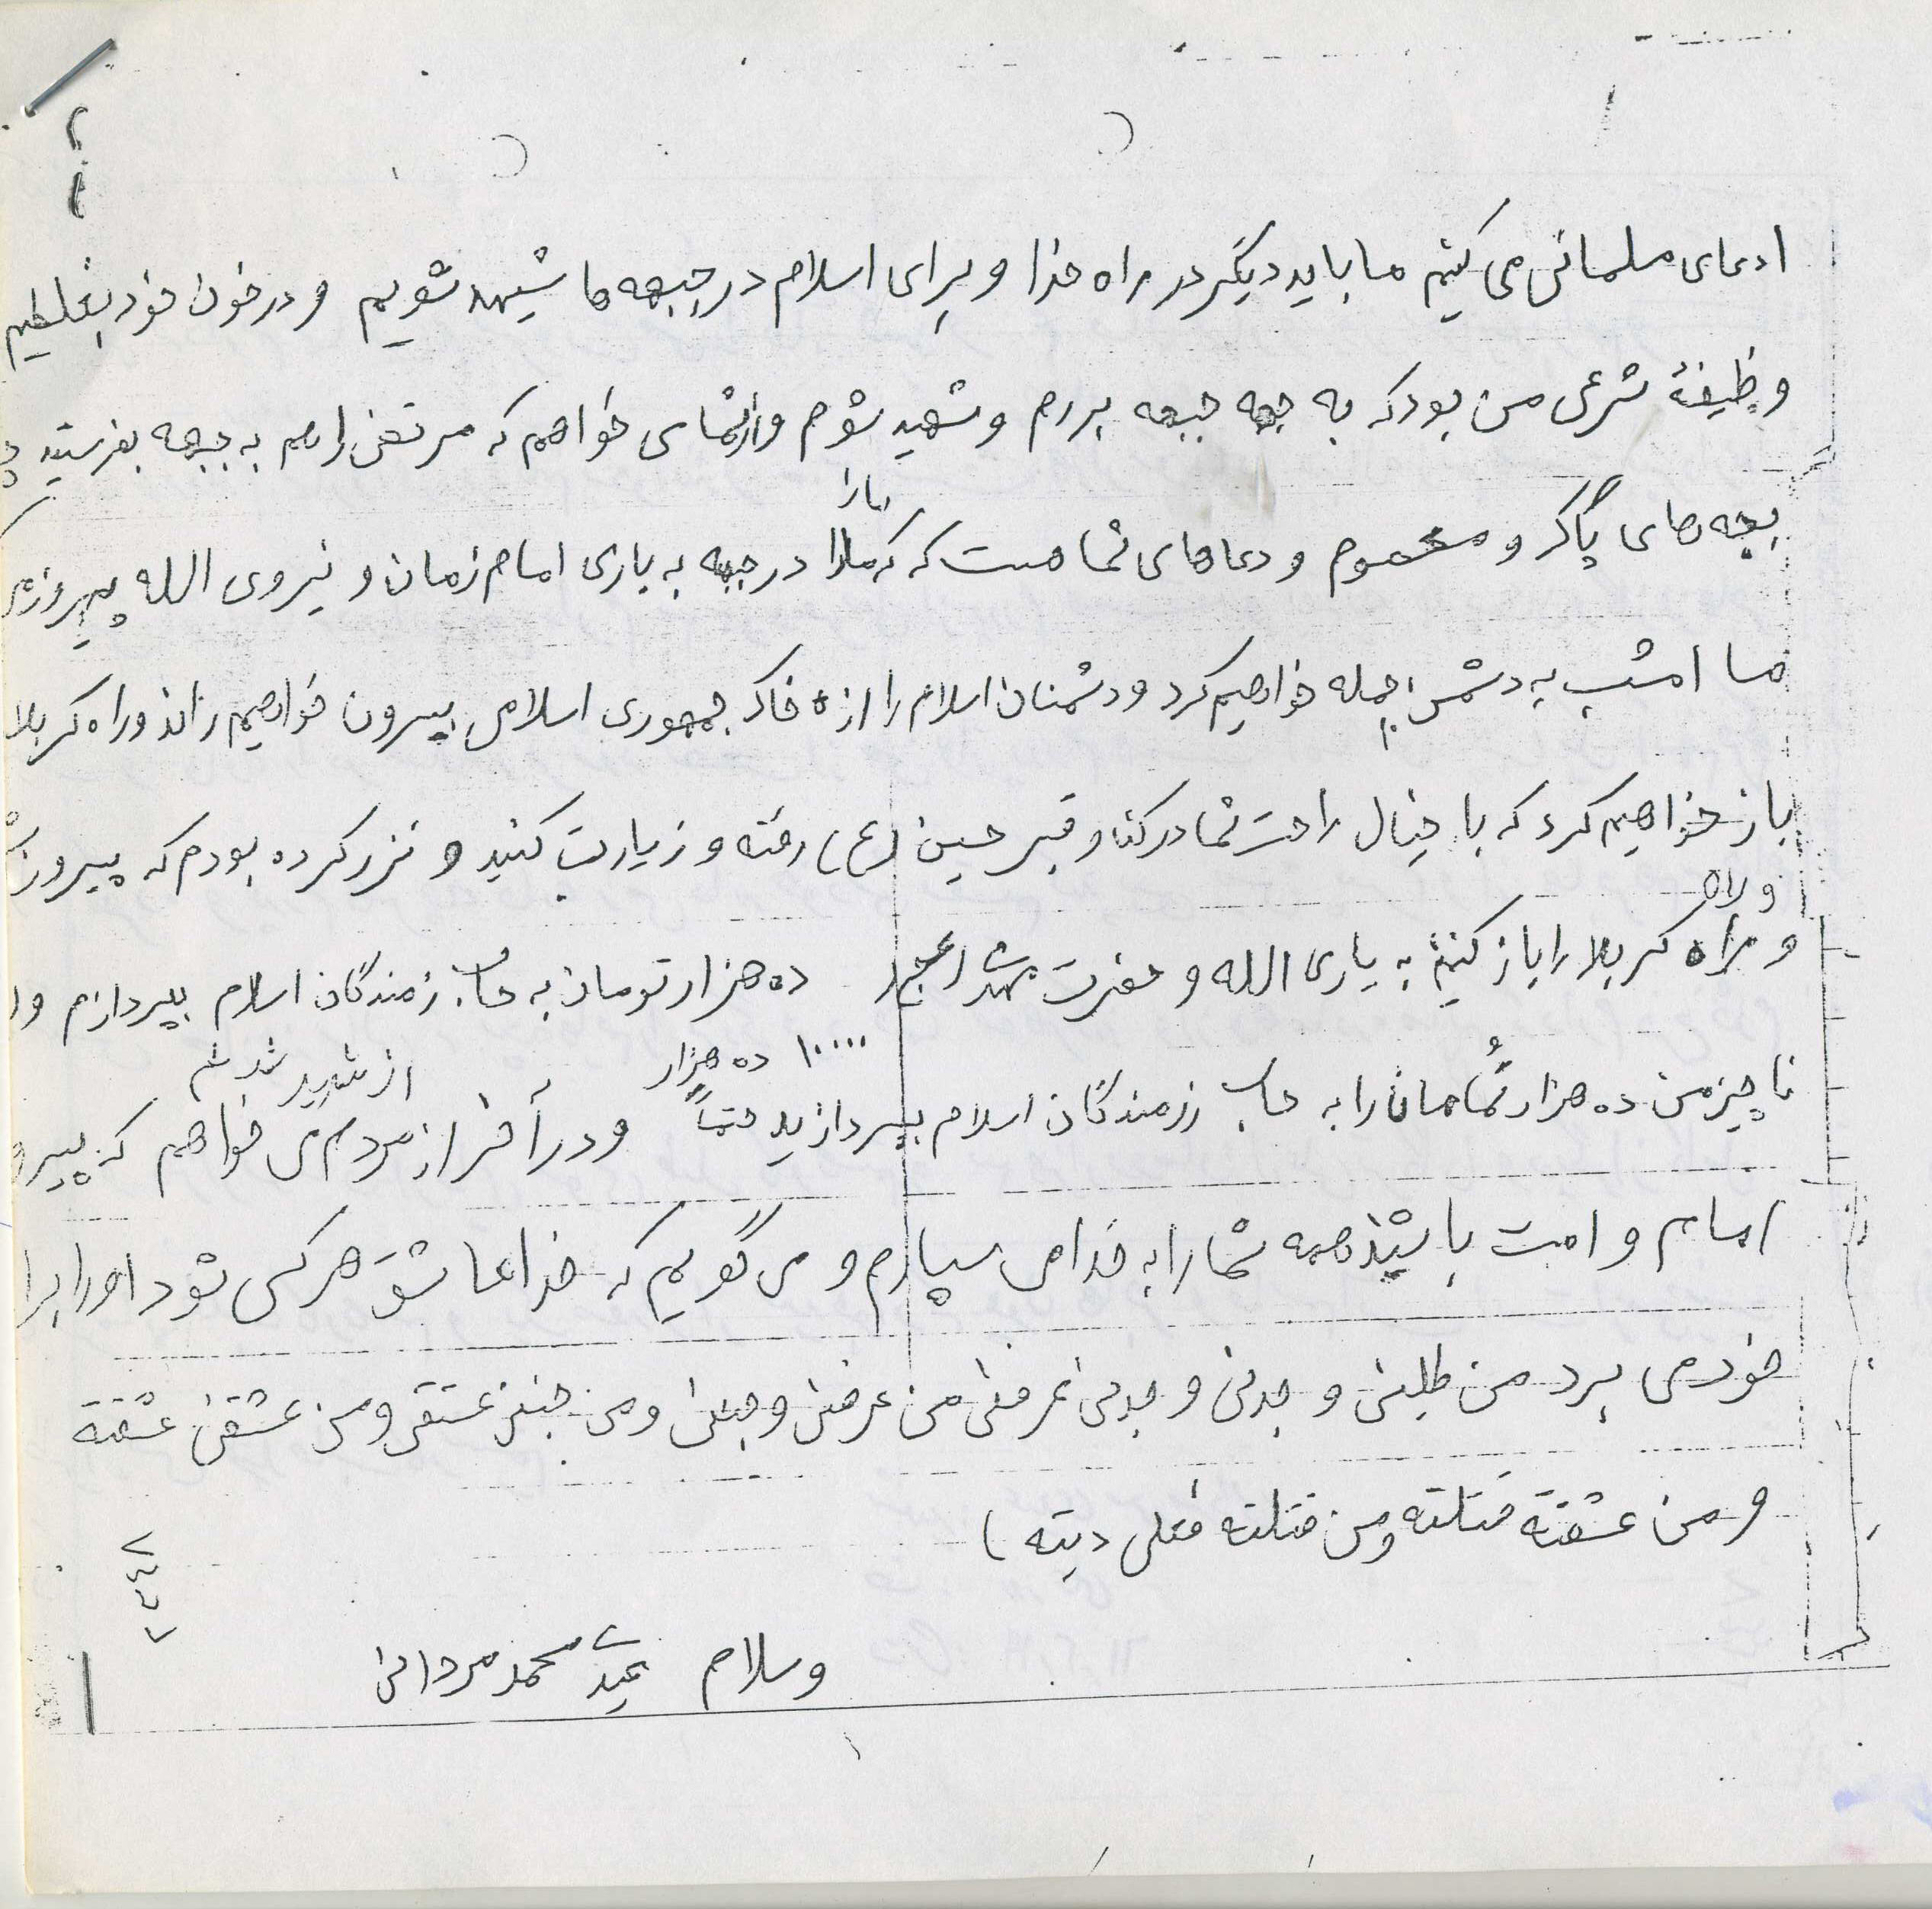 ادعای مسلمانی می کنیم ما باید دیگر در راه خدا و برای اسلام در جبهه ها شهید شویم و در خون خود بغلطیم
وظیفهٔ شرعی من بود که به جبهه بروم و شهید شوم و از شما می خواهم که مرتضی را هم به جبهه بفرستید
ما را
بچه های پاک و معصوم و دعاهای شما هست که که ما را در جبهه به یاری امام زمان و نیروی الله پیروز
ما امشب به دشمن حمله خواهیم کرد و دشمنان اسلام را از خاک جمهوری اسلامی بیرون خواهیم راند و راه کربلا
باز خواهیم کرد که با خیال راحت شما در کنار قبر حسین (ع) رفته و زیارت کنید و نزر کرده بودم که پیروز
و راه
و راه کربلا را باز کنیم به یاری الله و حضرت مهدی (عج) ده هزار تومان به حساب رزمندگان اسلام بپردازم و
۱۰۰۰۰ ده هزار
از شهید شدنم
ناچیز من ده هزار تُمامان را به حساب رزمندگان اسلام بپردازید حتماً و در آخر از مردم می خواهم که پیرو
امام و امت باشید همه شما را به خدا می سپارم و می گویم که خدا عاشق هر کس شود او را
خود می برد من طلبنی وجدنی و من وجدنی عرفنی من عرفنی و من عشقنی عشقته
و من عشقته قتلته و من قتلته فعلی دیته )
وسلام محمد مردانی